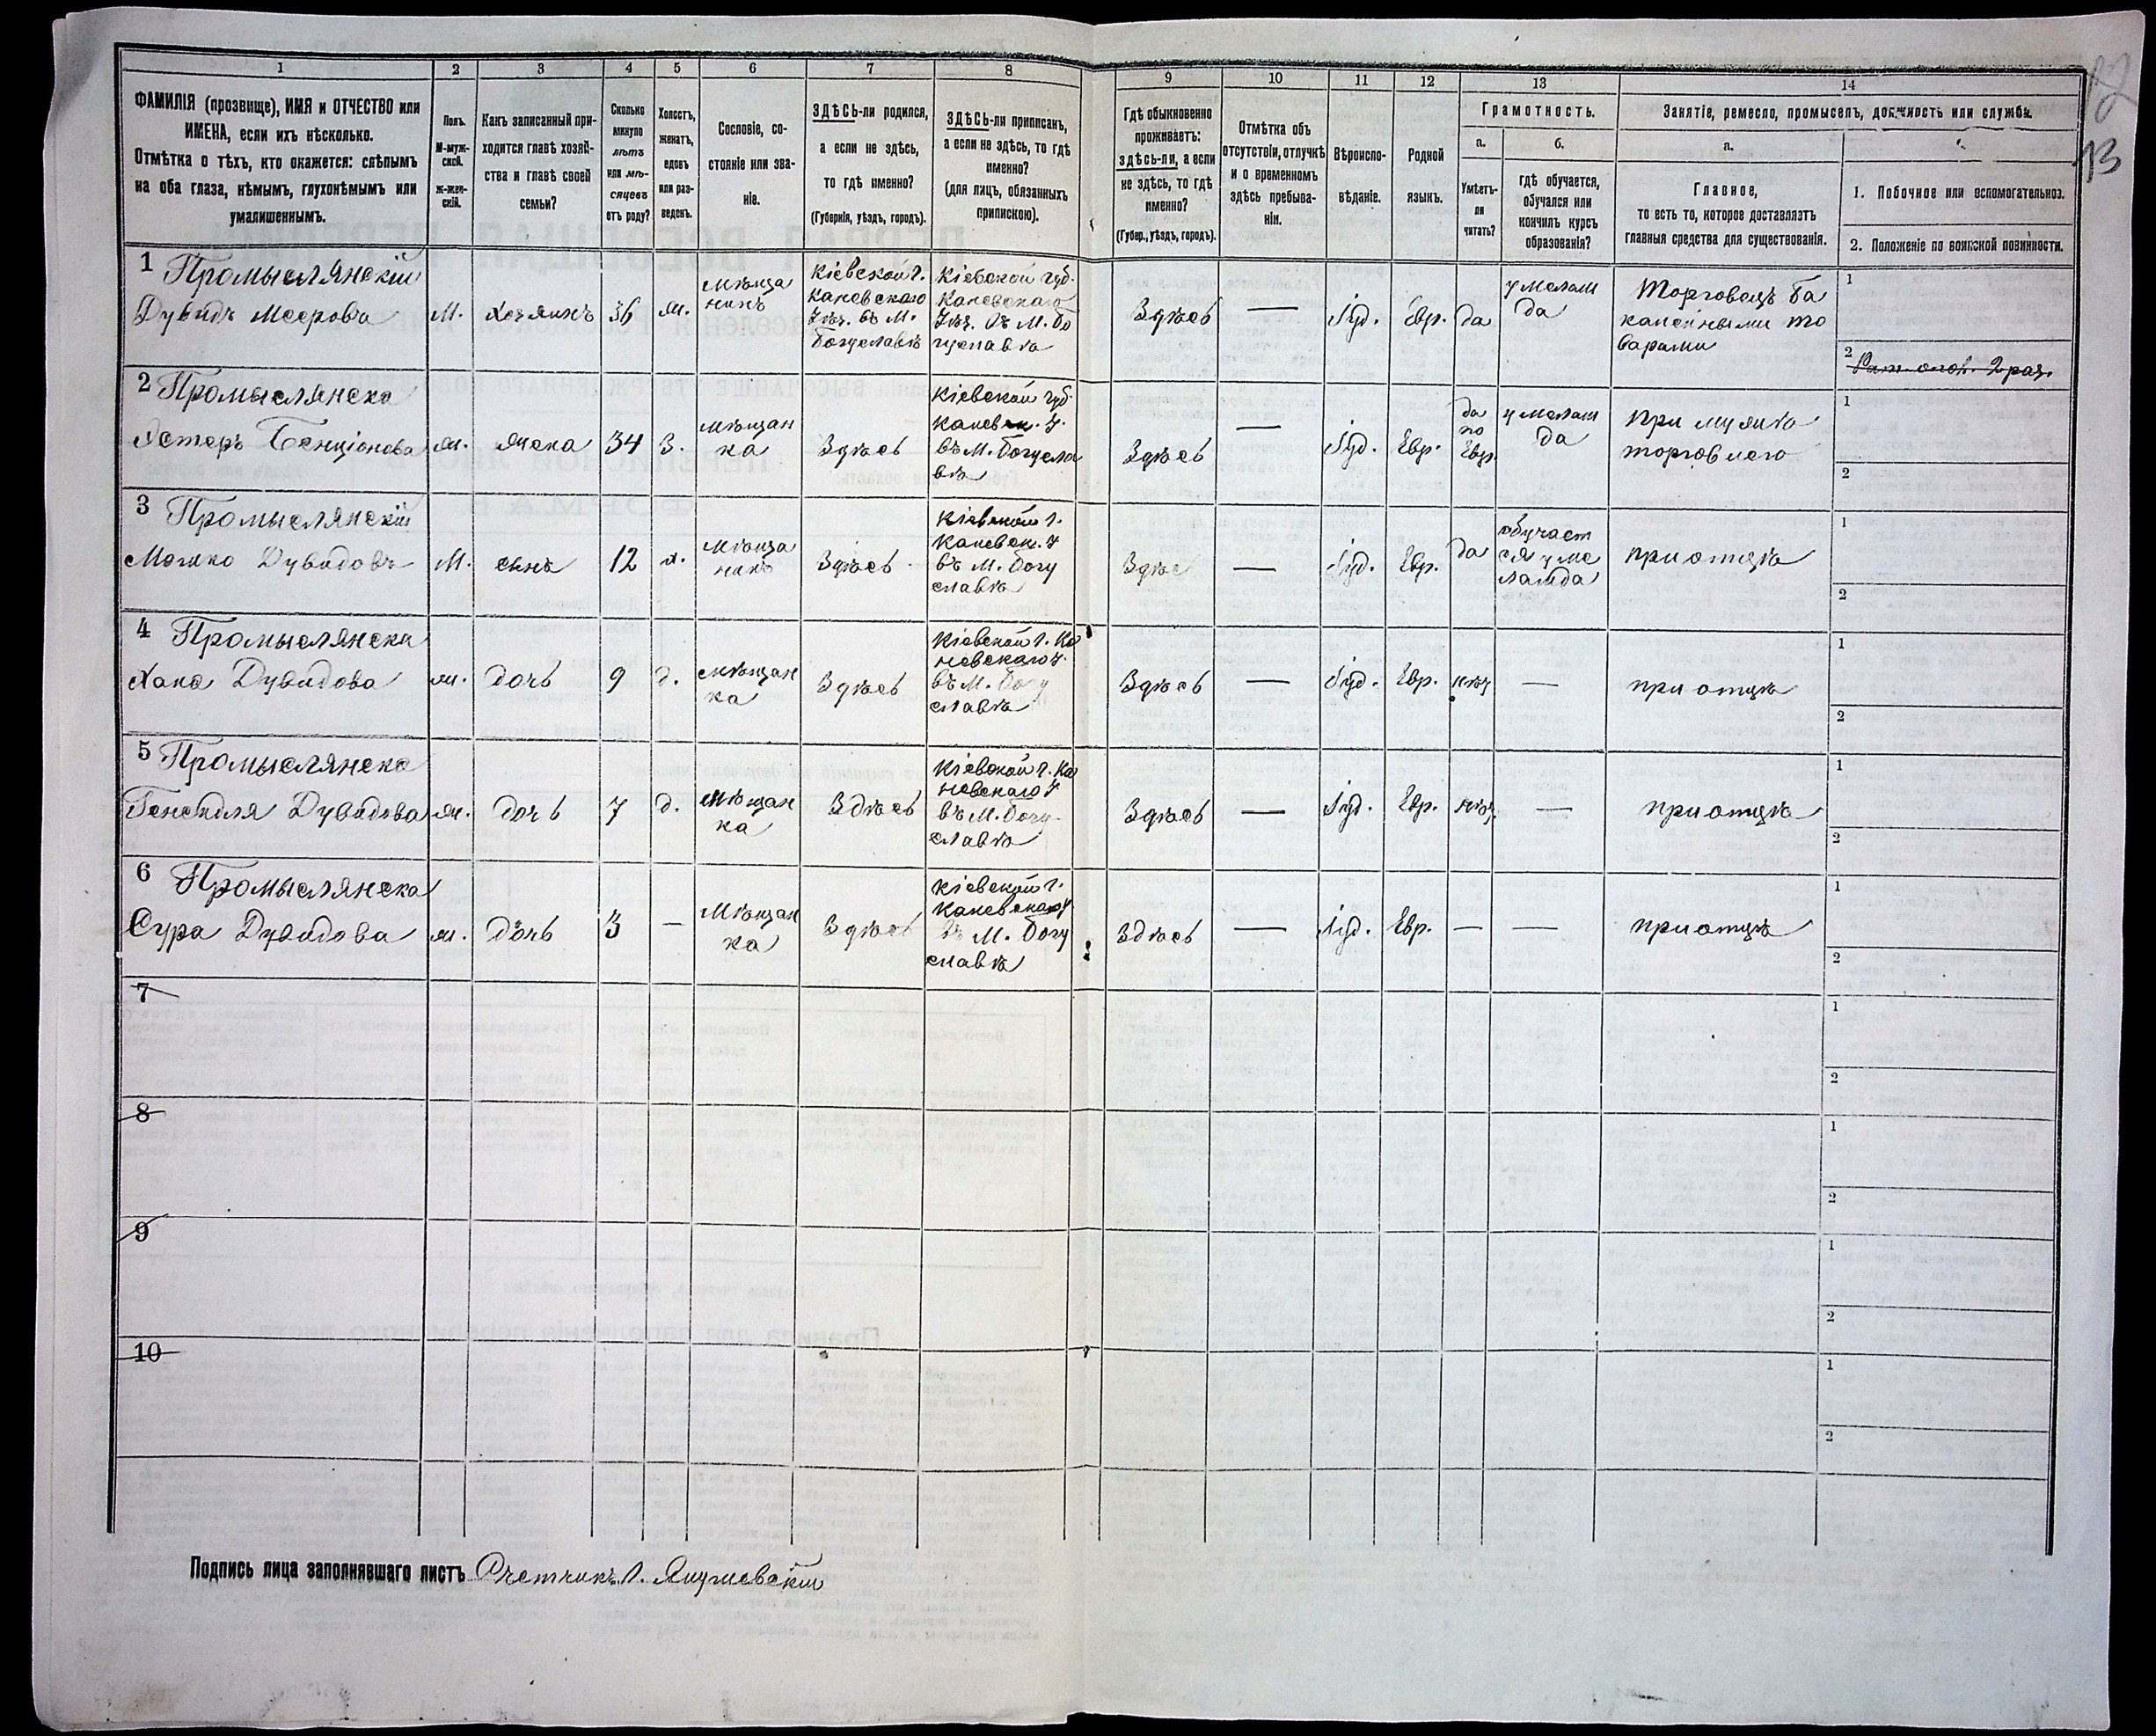 1 2 3 4 5 6 7 8 9 10 11 12 13 14
ФАМИЛІЯ (прозвище), ИМЯ и ОТЧЕСТВО или
ИМЕНА, если ихъ нѣсколько.
Отмѣтка о тѣхъ, кто окажется: слѣпымъ
на оба глаза, нѣмымъ, глухонѣмымъ или
умалишеннымъ.
Полъ.
М-муж-
ской.
Ж-жен-
скій.
Какъ записанный при-
ходится главѣ хозяй-
ства и главѣ своей
семьи?
Сколько
минуло
лѣтъ
или мѣ-
сяцевъ
отъ роду?
Холостъ,
женатъ,
вдовъ
или раз-
веденъ.
Сословіе, со-
стояніе или зва-
ніе.
ЗДѢСЬ-ли родился,
а если не здѣсь,
то гдѣ именно?
(Губернія, уѣздъ, городъ).
ЗДѢСЬ-ли приписанъ,
а если не здѣсь, то гдѣ
именно?
(для лицъ, обязанныхъ
припискою).
Гдѣ обыкновенно
проживаетъ:
здѣсь-ли, а если
не здѣсь, то гдѣ
именно?
(Губер., уѣздъ, городъ).
Отмѣтка объ
отсутствіи, отлучкѣ
и о временномъ
здѣсь пребыва-
ніи.
Вѣроиспо-
вѣданіе.
Родной
языкъ.
Грамотность.
а.
Умѣетъ-
ли
читать?
б.
гдѣ обучается,
обучался или
кончилъ курсъ
образованія?
Занятіе, ремесло, промыселъ, должность или служба.
а.
Главное,
то есть то, которое доставляетъ
главныя средства для существованія.
1. Побочное или вспомогательное.
2. Положеніе по воинской повинности.
13
1 Промыслянскій
Дувидъ Мееровъ
М.
Хозяинъ
36
ж.
мѣща
нинъ
Кіевской г.
Каневскаго
Уѣз. въ М.
Богуславѣ
Кіевской губ.
Каневскаго
Уѣз. въ М. Бо
гуславѣ
Здѣсь
—
Іуд.
Евр.
да
у мелам
да
Торговецъ ба
калейными то
варами
1
2
2 Промыслянска
Эстеръ Бенціонова
ж.
жена
34
З.
мѣщан
ка
Здѣсь
Кіевской губ.
Каневск. У.
въ М. Богусла
вѣ
Здѣсь
—
Іуд.
Евр.
да
по
Евр.
у мелам
да
при мужѣ
торговлею
1
2
3 Промыслянскій
Мошко Дувидовъ
М.
сынъ
12
х.
мѣща
нинъ
Здѣсь
Кіевской г.
Каневск. У
въ М. Богу
славѣ
Здѣс
—
Іуд.
Евр.
да
обучает
ся у ме
ламда
при отцѣ
1
2
4 Промыслянска
Хана Дувидова
ж.
дочь
9
д.
мѣщан
ка
Здѣсь
Кіевской г. Ка
невскаго У.
въ М. Богу
славѣ
Здѣсь
—
Іуд.
Евр.
нѣт
—
при отцѣ
1
2
5 Промыслянска
Дувидова
ж.
дочь
7
д.
мѣщан
ка
Здѣсь
Кіевской г. Ка
невскаго У
въ М. Богу
славѣ
Здѣсь
—
Іуд.
Евр.
нѣт.
—
при отцѣ
1
2
6 Промыслянска
Сура Дувидова
ж.
дочь
3
—
Мѣщан
ка
Здѣсь
Кіевской г.
Каневскаго У
въ М. Богу
славѣ
Здѣсь
—
Іуд.
Евр.
—
—
при отцѣ
1
2
7
1
2
8
1
2
9
1
2
10
1
2
Подпись лица заполнявшаго листъ Счетчикъ